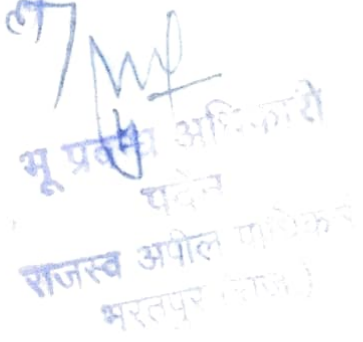 भू प्रबन्ध अधिकारी
पदेन
राजस्व अपील
भरतपुर (राज.)